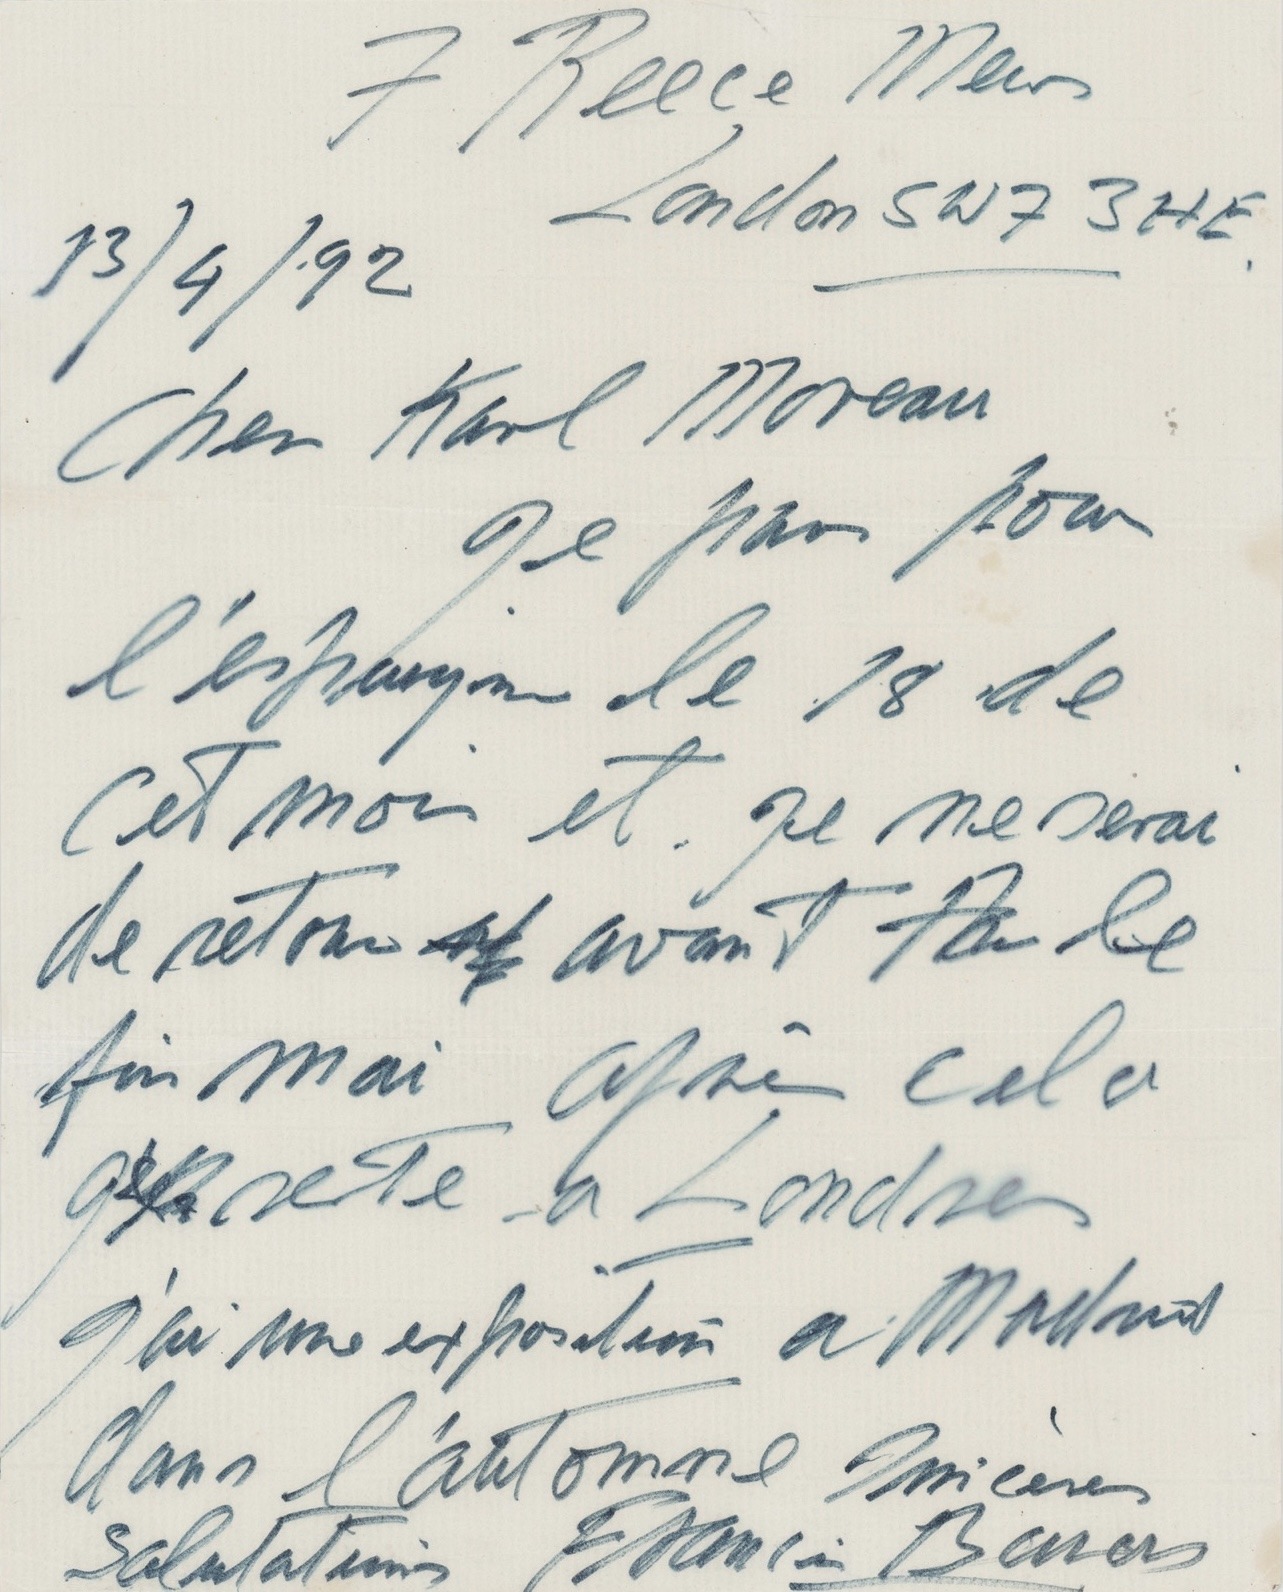 7 Reece Mews
London SW7 3HE.
13/4/92
Cher Karl Moreau
Je pars pour
l'éspagne le 18 de
cet mois et je ne serai
de retour avant le
fin mai après cela
je reste a Londres
J'ai une exposition a Madrid
dans l'automne Sincères
salutations Francis Bacon